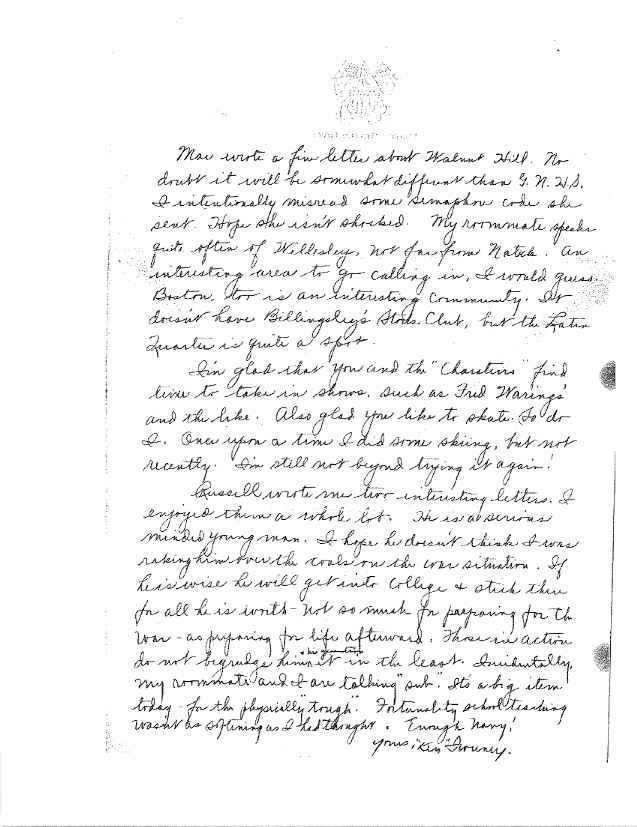 Mae wrote a fine letter about Walnut Hill. No
doubt it will be somewhat different than G. N. H.S.
I intentionally misread some semaphore code she
sent. Hope she isn't shocked. My roommate speaks
quite often of Wellesley, not far from Natick. An
interesting area to go calling in, I would guess.
Boston, too is an interesting community. It
doesn't have Billingsley's Stork Club, but the Latin
Quarter is quite a spot.
I'm glad that you and the "Charsters" find
time to take in shows, such as Fred Waring's
and the like. Also glad you like to skate. So do
I. Once upon a time I did some skiing, but not
recently. I'm still not beyond trying it again!
Russell wrote me two interesting letters. I
enjoyed them a whole lot. He is a serious
minded young man. I hope he doesn't think I was
raking him over the coals on the war situation. If
he is wise he will get into college & stick there
for all he is worth - not so much for preparing for the
war - as preparing for life afterward. Those in action
do not begrudge him it in the least. Incidentally,
my roommate and I are talking "sub". It's a big item
today - for the physically "tough". Fortunately school teaching
wasn't as softening as I had thought. Enough Navy!
Yours, "Ken"